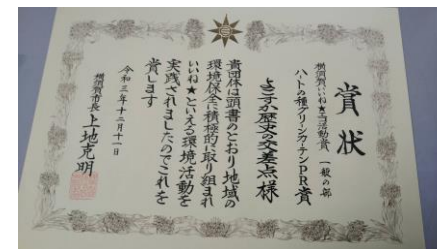 賞状
横須賀いいね★エコ活動賞 一般の部
ハートの種グリーンカーテンPR賞
よこすか歴史の交差点様
貴団体は頭書のとおり地域の
環境保全に積極的に取り組まれ
いいね★といえる環境活動を
実践されましたのでこれを
賞します
令和三年十二月十一日
横須賀市長 上地克明